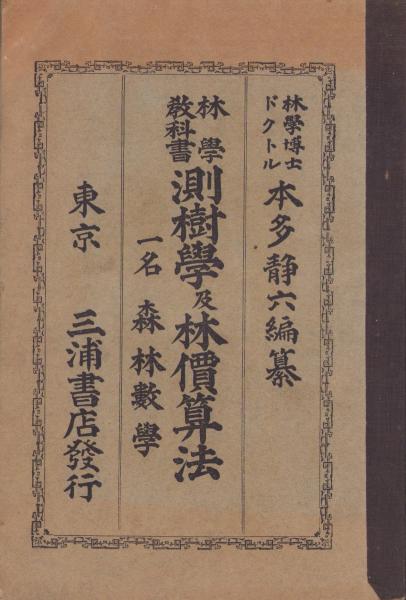 林學博士
ドクトル
本多靜六編纂
林學
敎科書
測樹學及林價算法
一名 森林數學
東京 三浦書店發行